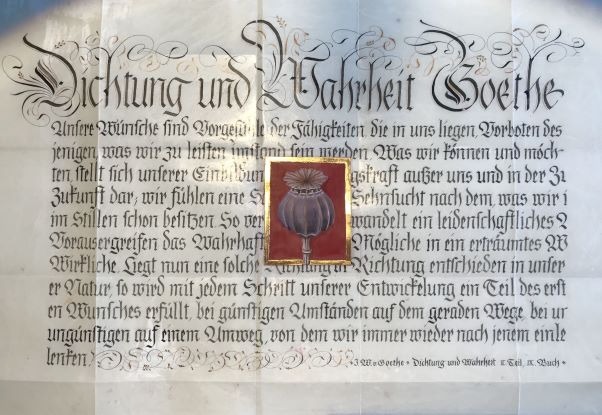 Dichtung und Wahrheit Goethe
Unsere Wünsche sind Vorgefühle der Fähigkeiten, die in uns liegen, Vorboten des
jenigen, was wir zu leisten imstand sein werden. Was wir können und möch-
ten stellt sich unserer außer uns und in der Zu
Zukunft dar; wir fühlen eine Sehnsucht nach dem, was wir i
im Stillen schon besitzen. So wandelt ein leidenschaftliches
Vorausergreifen das Mögliche in ein erträumtes W
Wirkliche. Liegt nun eine solche Richtung entschieden in unser
er Natur, so wird mit jedem Schritt unserer Entwickelung ein Teil des erst
en Wunsches erfüllt, bei günstigen Umständen auf dem geraden Wege, bei un
ungünstigen auf einem Umweg, von dem wir immer wieder nach jenem einle
lenken.
J. W. v. Goethe • Dichtung und Wahrheit II. Teil, IX. Buch •